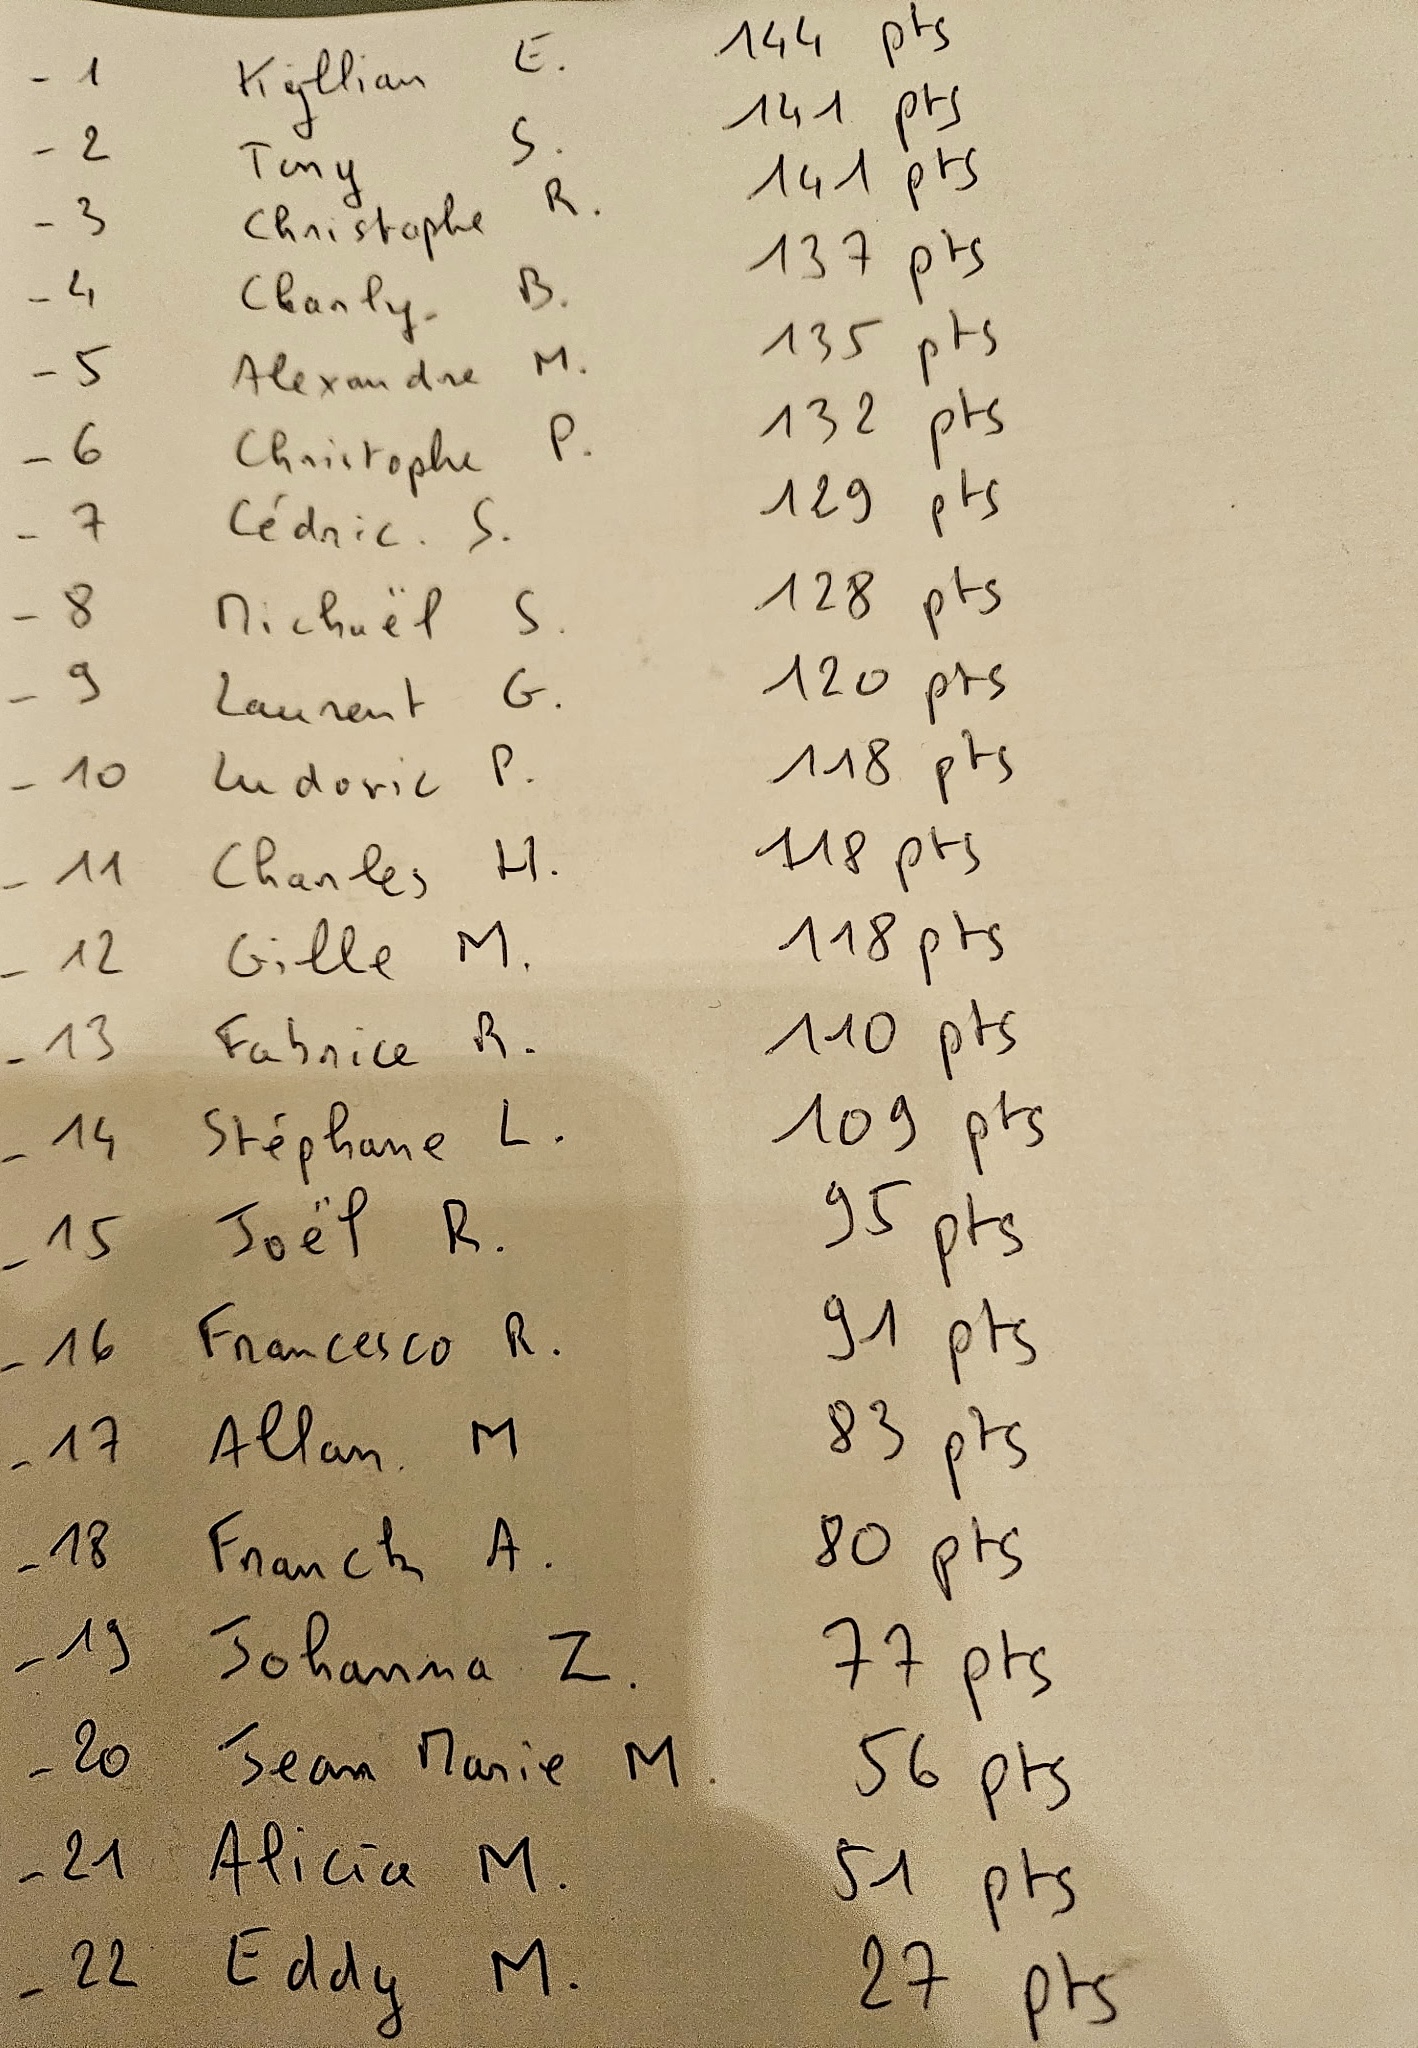 - 1 Kyllian E. 144 pts
- 2 Tony S. 141 pts
- 3 Christophe R. 141 pts
- 4 Charly. B. 137 pts
- 5 Alexandre M. 135 pts
- 6 Christophe P. 132 pts
- 7 Cédric. S. 129 pts
- 8 Michaël S. 128 pts
- 9 Laurent G. 120 pts
- 10 Ludovic P. 118 pts
- 11 Charles H. 118 pts
- 12 Gille M. 118 pts
- 13 Fabrice R. 110 pts
- 14 Stéphane L. 109 pts
- 15 Joël R. 95 pts
- 16 Francesco R. 91 pts
- 17 Allan. M 83 pts
- 18 Franck A. 80 pts
- 19 Johanna Z. 77 pts
- 20 Jean Marie M. 56 pts
- 21 Alicia M. 51 pts
- 22 Eddy M. 27 pts